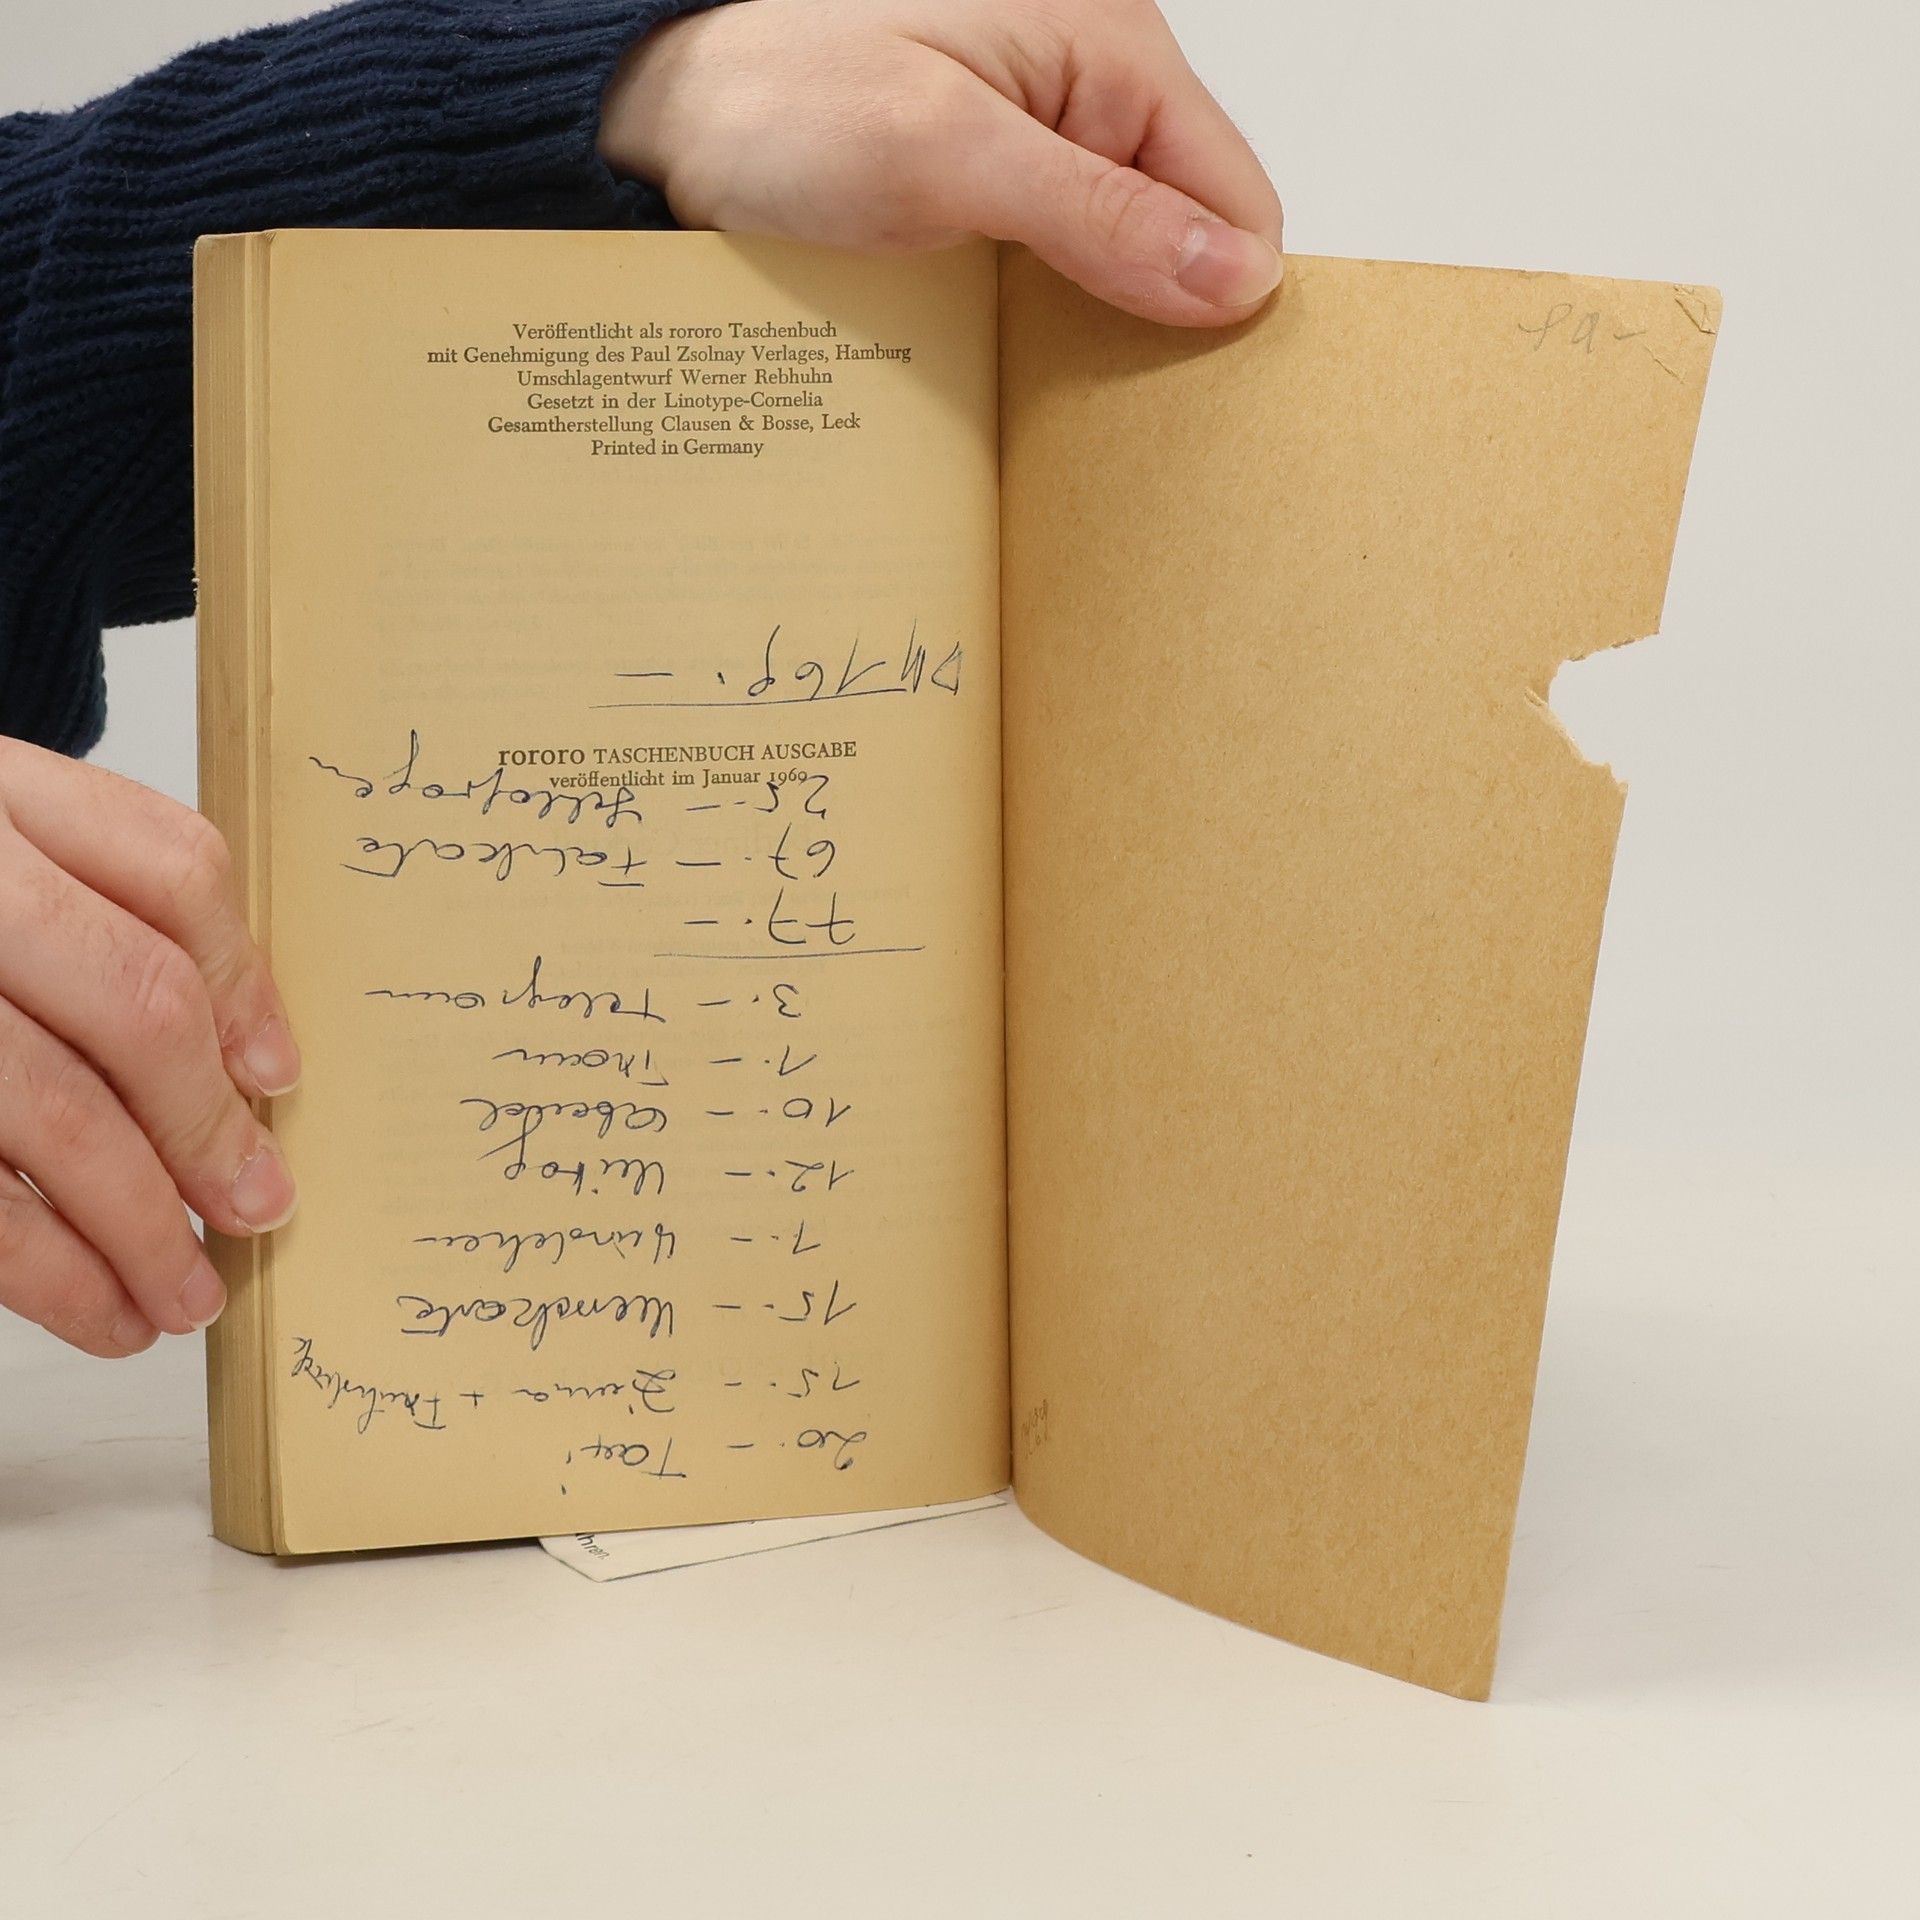 Veröffentlicht als rororo Taschenbuch
mit Genehmigung des Paul Zsolnay Verlages, Hamburg
Umschlagentwurf Werner Rebhuhn
Gesetzt in der Linotype-Cornelia
Gesamtherstellung Clausen & Bosse, Leck
Printed in Germany
rororo TASCHENBUCH AUSGABE
veröffentlicht im Januar 1969
20.– Taxi
15.– Zimmer + Frühstück
15.–
1.– Würstchen
12.– Mittag
10.–
1.– Tram
3.– Telegramm
77.–
67.– Fahrkarte
25.– Schlafwagen
DM 169.–
hren.